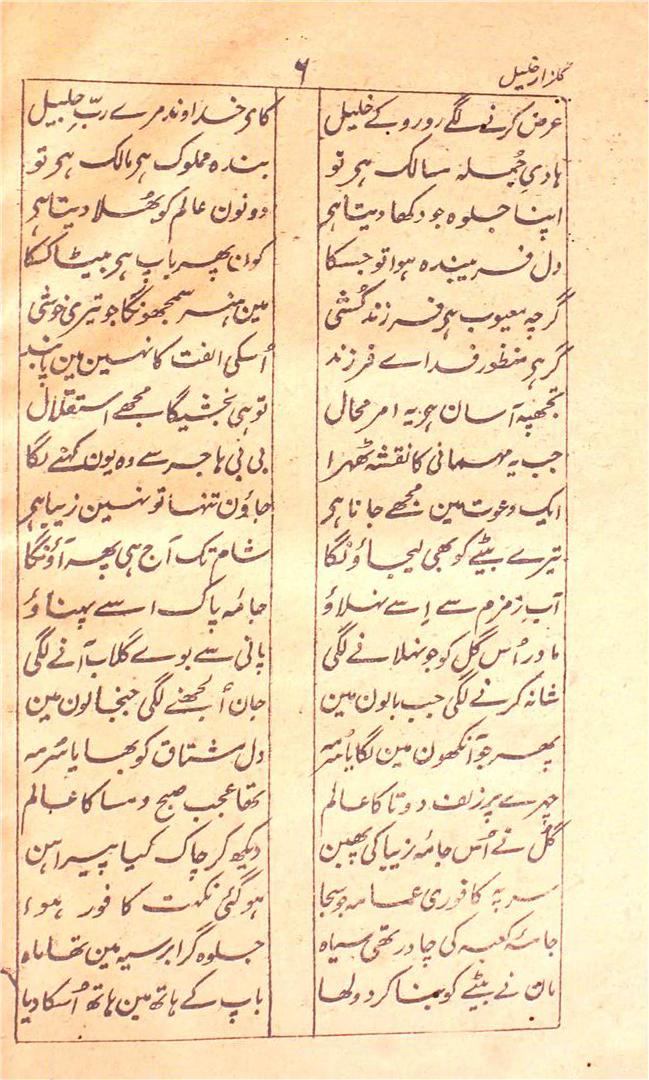 گلزار خلیل
۶
عرض کرنے لگے رو رو کے خلیل کای خداوند مرے ربّ جلیل
ہادیِ جُملہ سالک ہی تو بندہ مملوک ہی مالک ہی تو
اپنا جلوہ جو دکھا دیتا ہی دونون عالم کو بھُلا دیتا ہی
دل فریبندہ ہوا تو جسکا کون پھر باپ ہی بیٹا کسکا
گرچہ معیوب ہی فرزند کُشی مین ہنر سمجھونگا جو تیری خوشی
گر ہی منظور فداے فرزند اُسکی الفت کا نہین مین پابند
تجھپہ آسان ہی یہ امر محال تو ہی بخشیگا مجھے استقلال
جب یہ مہمانی کا نقشہ ٹھہرا بی بی ہاجر سے وہ یون کہنے لگا
ایک دعوت مین مجھے جانا ہی جاؤن تنہا تو نہین زیبا ہی
تیرے بیٹے کو بھی لیجاؤنگا شام تک آج ہی پھر آؤنگا
آبِ زمزم سے اِسے نہلاؤ جامہ پاک اسے پہناؤ
مادر اُس گل کو جو نہلانے لگی پانی سے بوے گلاب آنے لگی
شانہ کرنے لگی جب بالون مین جان اُلجھنے لگی جنجالون مین
پھر جو آنکھون مین لگایا سُرمہ دل مشتاق کو بھایا سُرمہ
چہرے پر زلف دوتا کا عالم تھا عجب صبح و مسا کا عالم
گل نے اُس جامۂ زیبا کی پھبن دیکھ کر چاک کیا پیراہن
سر پہ کافوری عمامہ جو سجا ہو گئی نکہت کافور ہوا
جامۂ کعبہ کی چادر تھی سیاہ جلوہ گر ابر سیہ مین تھا ماہ
مان نے بیٹے کو بنا کر دولھا باپ کے ہاتھ مین ہاتھ اُسکا دیا